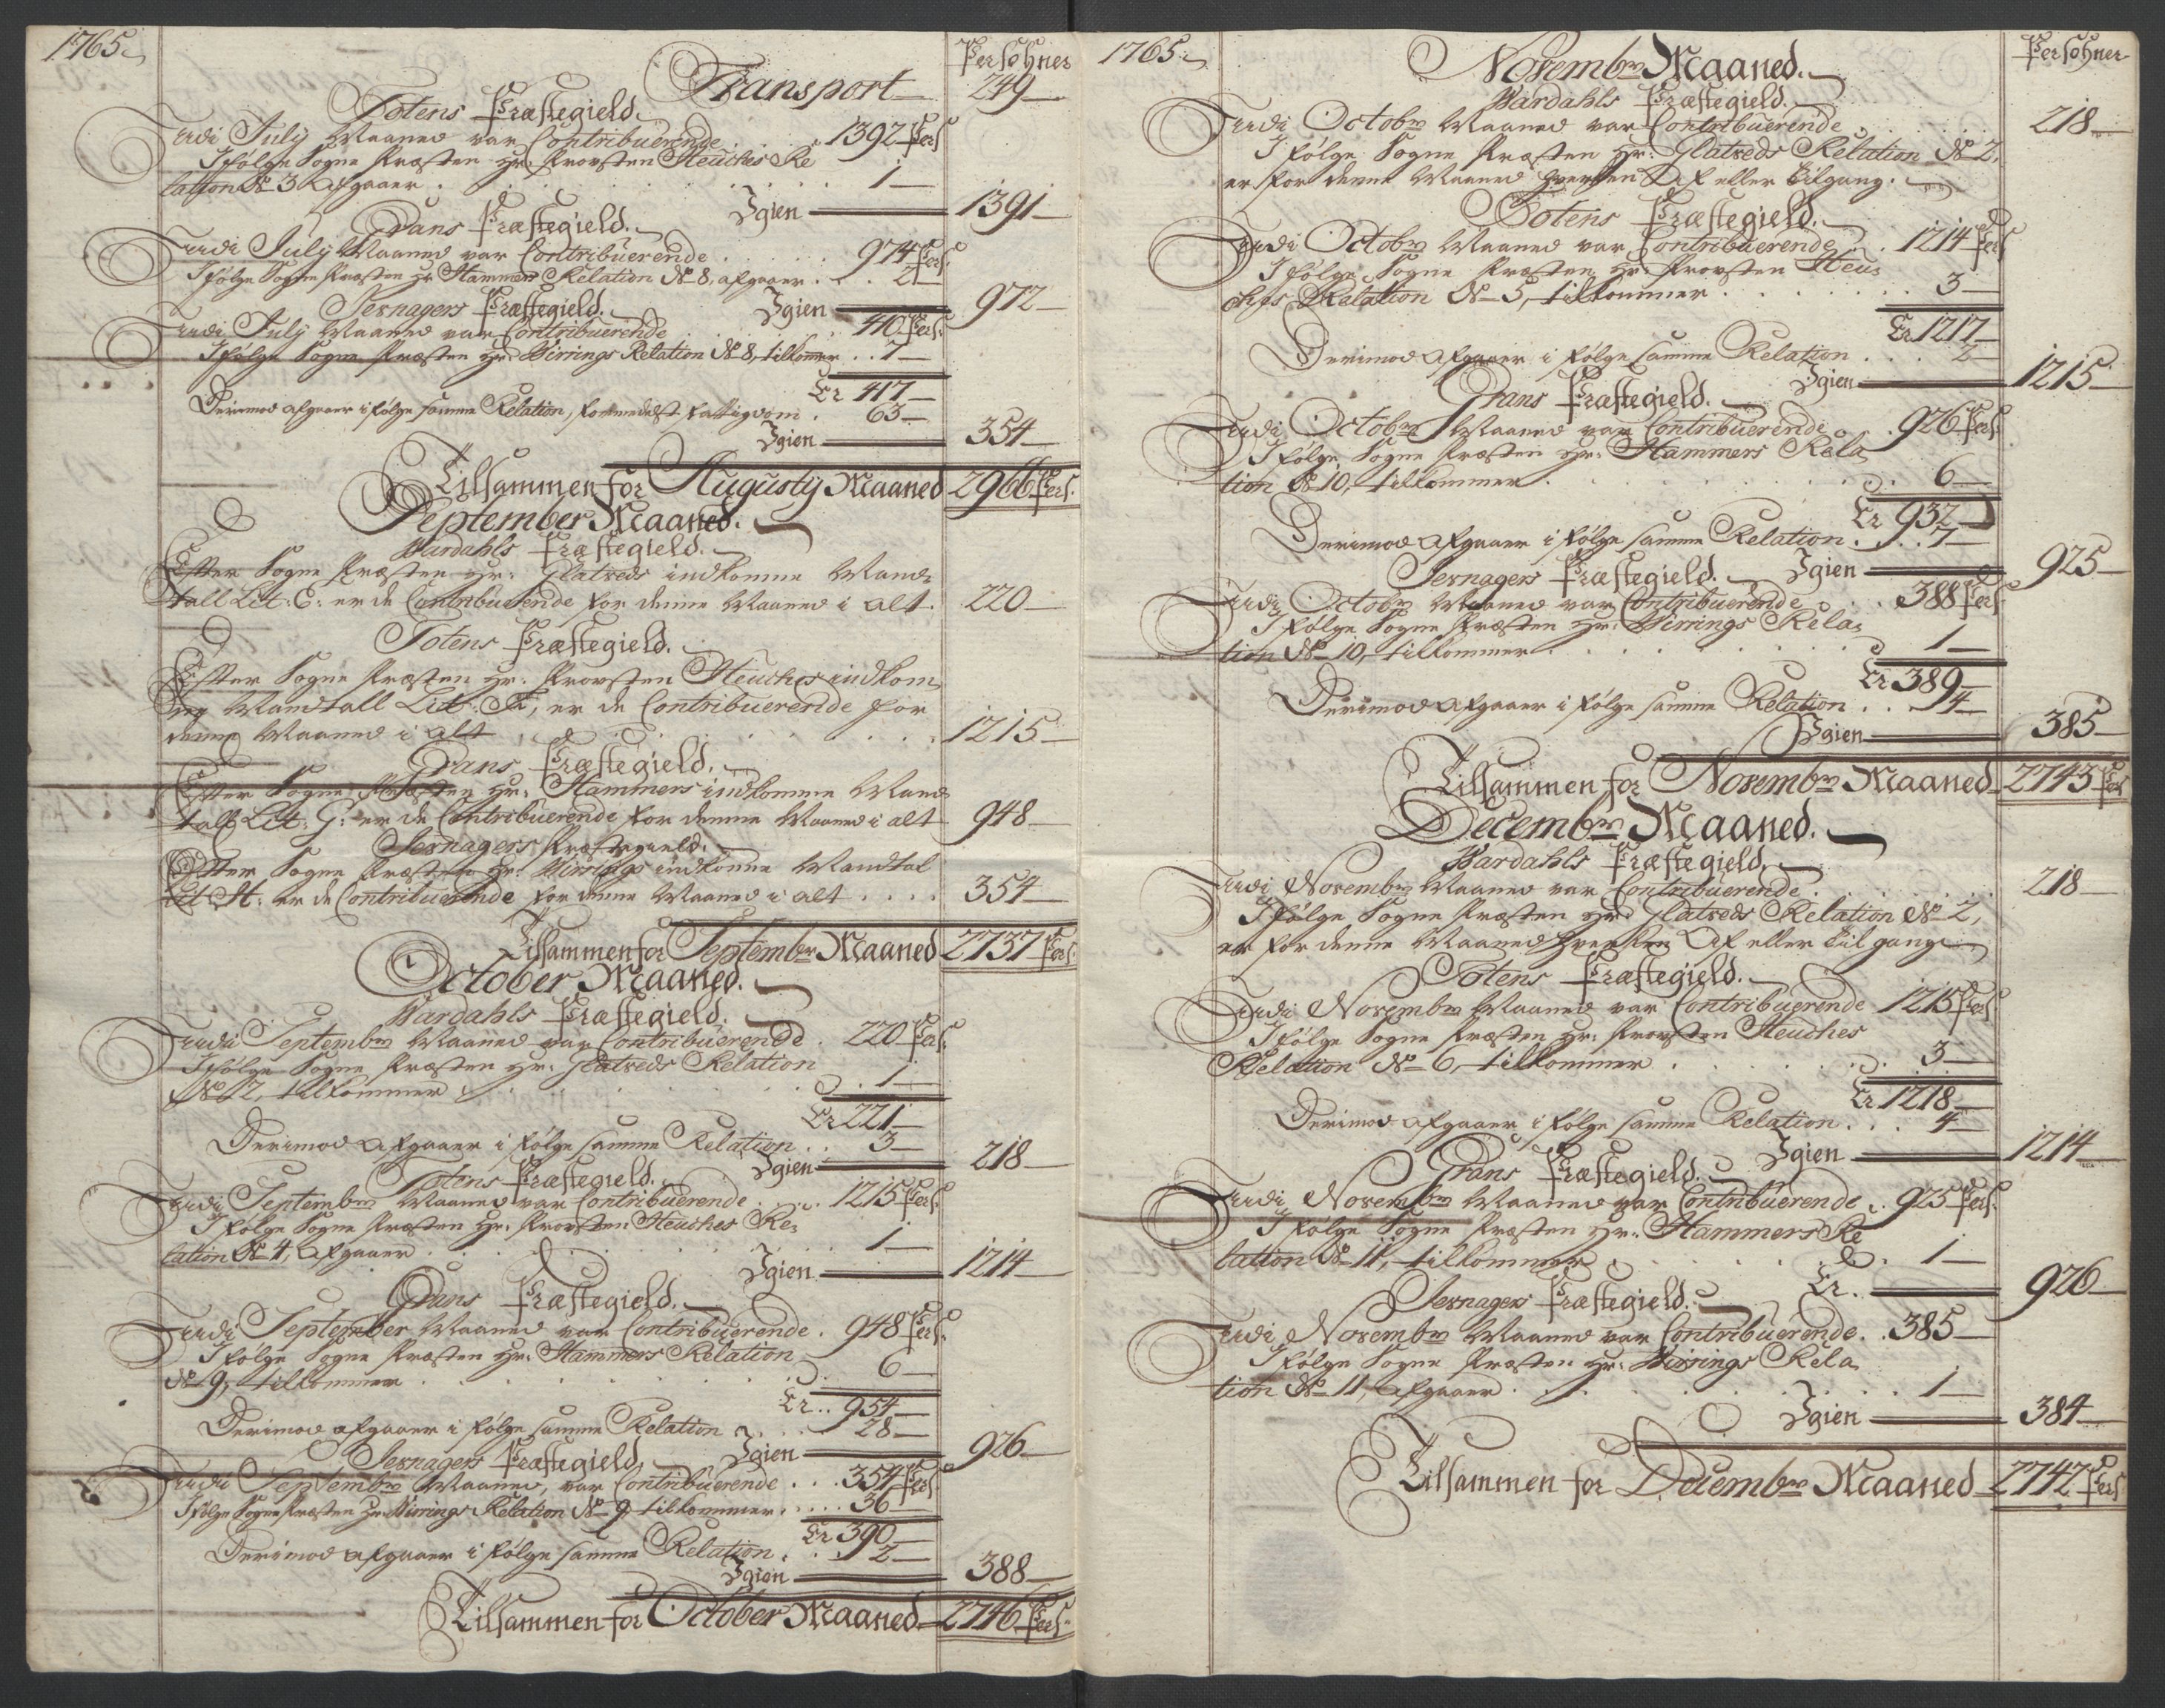 1765.
Persohner
Transport 249
Totens Præstegield.
Indi July Maaned var Contribuerende 1392 Pers
I følge Sogne Præsten Hr. Provsten Heuches Re
lation No 3 Afgaaer 1
Igien 1391
Grans Præstegield.
Indi July Maaned var Contribuerende 974 Pers.
I følge Sogne Præsten Hr Hammers Relation No 8, afgaaer 2
Igien 972
Jevnagers Præstegield.
Indi July Maaned var Contribuerende 410 Pers.
I følge Sogne Præsten Hr. Wirrings Relation No 8, tilkommer 7
Er 417
Derimod afgaaer i følge samme Relation, formedelst fattigdom 63
Igien 354
Tilsammen for Augusty Maaned 2966 Pers.
September Maaned.
Wardahls Præstegield.
Efter Sogne Præsten Hr. Glatveds indkomne Mand
tall Lit: E: er de Contribuerende for denne Maaned i alt. 220
Totens Præstegield.
Efter Sogne Præsten Hr. Provsten Heuches indkom
ne Mandtall Lit. F, er de Contribuerende for
denne Maaned i alt 1215
Grans Præstegield.
Efter Sogne Præsten Hr. Hammers indkomne Mand
tall Lit: G: er de Contribuerende for denne Maaned i alt 948
Jevnagers Præstegield.
Efter Sogne Præsten Hr. Wirrings indkomne Mandtal
Lit H: er de Contribuerende for denne Maaned i alt 354
Tilsammen for Septembr Maaned 2737 Pers.
October Maaned.
Wardahls Præstegield.
Indi Septembr Maaned var Contribuerende 220 Pers.
I følge Sogne Præsten Hr. Glatveds Relation
No 12, tilkommer 1
Er 221
Derimod afgaaer i følge samme Relation 3
Igien 218
Totens Præstegield.
Indi Septembr Maaned var Contribuerende 1215 Pers.
I følge Sogne Præsten Hr. Provsten Heuches Re
lation No 4, Afgaaer 1
Igien 1214
Grans Præstegield.
Indi September Maaned var Contribuerende 948 Pers.
I følge Sogne Præsten Hr. Hammers Relation
No 9, tilkommer 6
Er 954
Derimod afgaaer i følge samme Relation 28
Igien 926
Jevnagers Præstegield.
Indi Septembr Maaned, var Contribuerende 354 Pers.
I følge Sogne Præsten Hr Wirrings Relation No 9 tilkommer 36
Er 390
Derimod afgaaer i følge samme Relation 2
Igien 388
Tilsammen for October Maaned 2746 Pers.
1765.
Persohner
Novembr Maaned.
Wardahls Præstegield.
Indi Octobr Maaned var Contribuerende 218
I følge Sogne Præsten Hr. Glatveds Relation No 2,
er for denne Maaned hverken Af eller Tilgang.
Totens Præstegield.
Indi Octobr Maaned var Contribuerende 1214 Pers
I følge Sogne Præsten Hr. Provsten Heu
ches Relation No 5, tilkommer 3
Er 1217
Derimod Afgaaer i følge samme Relation 2
Igien 1215
Grans Præstegield.
Indi Octobr Maaned var Contribuerende 926 Pers.
I følge Sogne Præsten Hr. Hammers Rela
tion No 10, tilkommer 6
Er 932
Derimod Afgaaer i følge samme Relation 7
Igien 925
Jevnagers Præstegield.
Indi Octobr Maaned var Contribuerende 388 Pers.
I følge Sogne Præsten Hr. Wirrings Rela
tion No 10, tilkommer 1
Er 389
Derimod Afgaaer i følge samme Relation 4
Igien 385
Tilsammen for Novembr Maaned 2743 Pers
Decembr Maaned.
Wardahls Præstegield.
Indi Novembr Maaned var Contribuerende 218
I følge Sogne Præsten Hr. Glatveds Relation No 2,
er for denne Maaned hverken Af eller Tilgang
Totens Præstegield.
Indi Novembr Maaned var Contribuerende 1215 Pers
I følge Sogne Præsten Hr. Provsten Heuches
Relation No 6, tilkommer 3
Er 1218
Derimod afgaaer i følge samme Relation 4
Igien 1214
Grans Præstegield.
Indi Novembr Maaned var Contribuerende 925 Pers.
I følge Sogne Præsten Hr. Hammers Re
lation No 11, tilkommer 1
Er 926
Jevnagers Præstegield.
Indi Novembr Maaned var Contribuerende 385
I følge Sogne Præsten Hr. Wirrings Rela
tion No 11, Afgaaer 1
Igien 384
Tilsammen for Decembr Maaned 2742 Pers